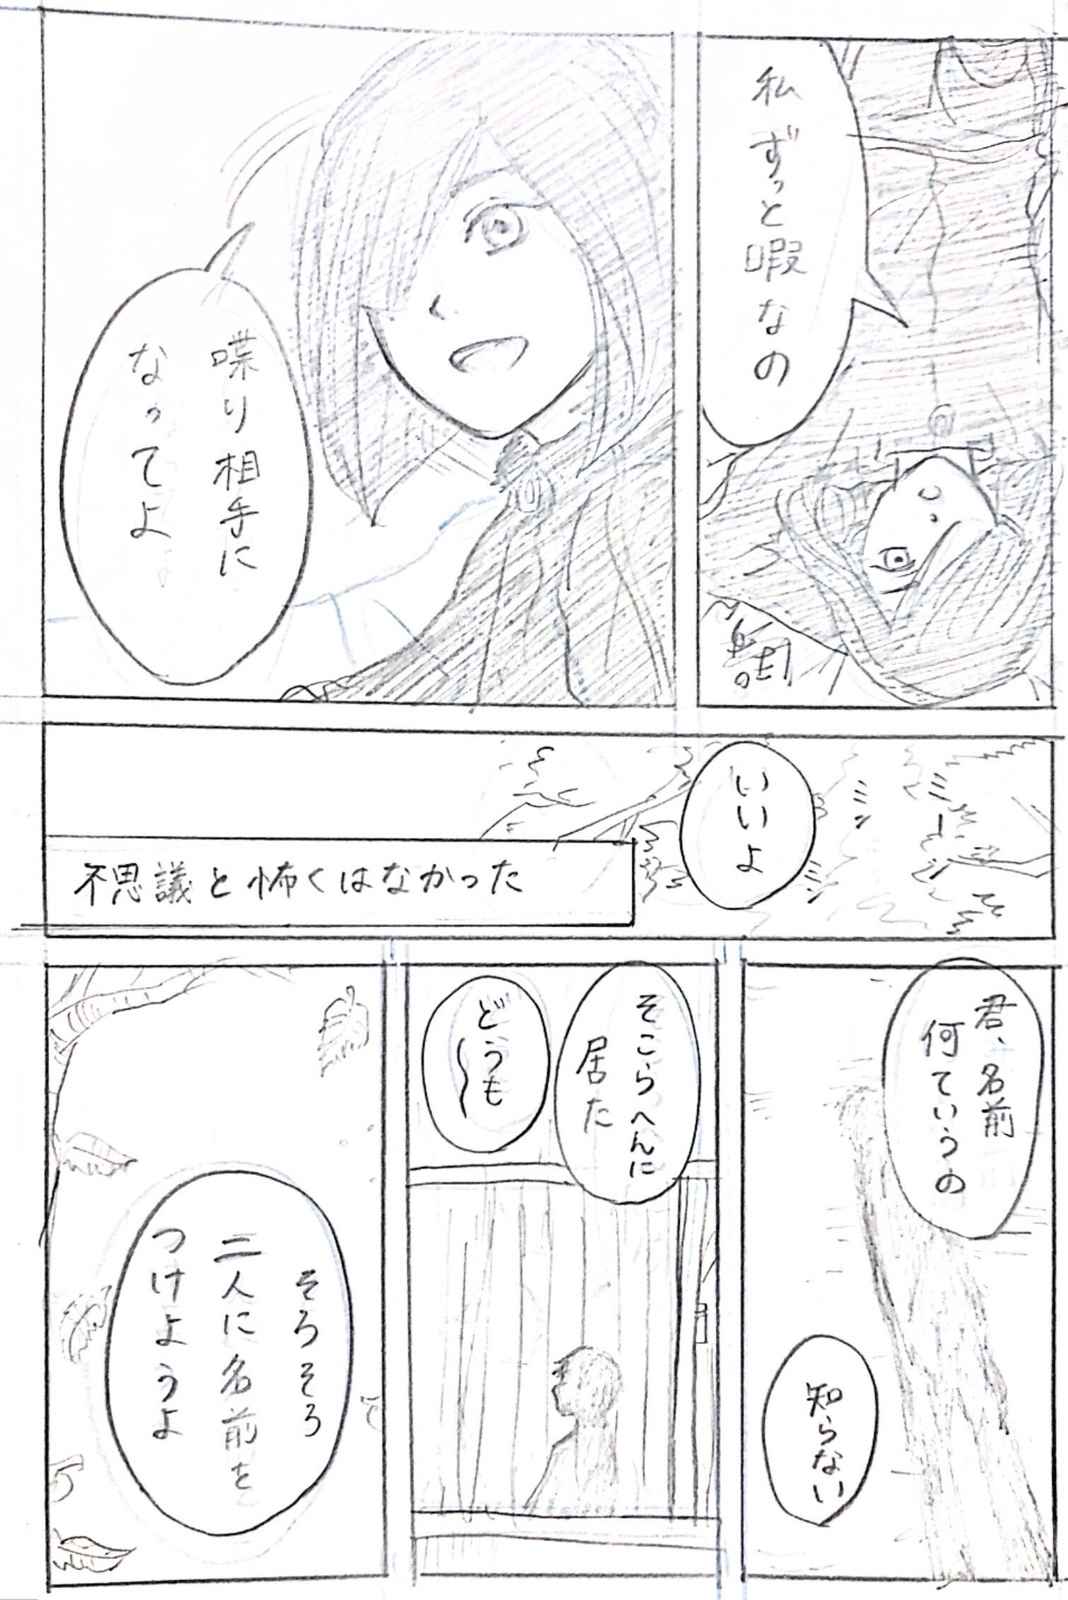 私ずっと暇なの
喋り相手に
なってよ
いいよ
不思議と怖くはなかった
君、名前
何ていうの
知らない
そこらへんに
居た
どうも
そろそろ
二人に名前を
つけようよ